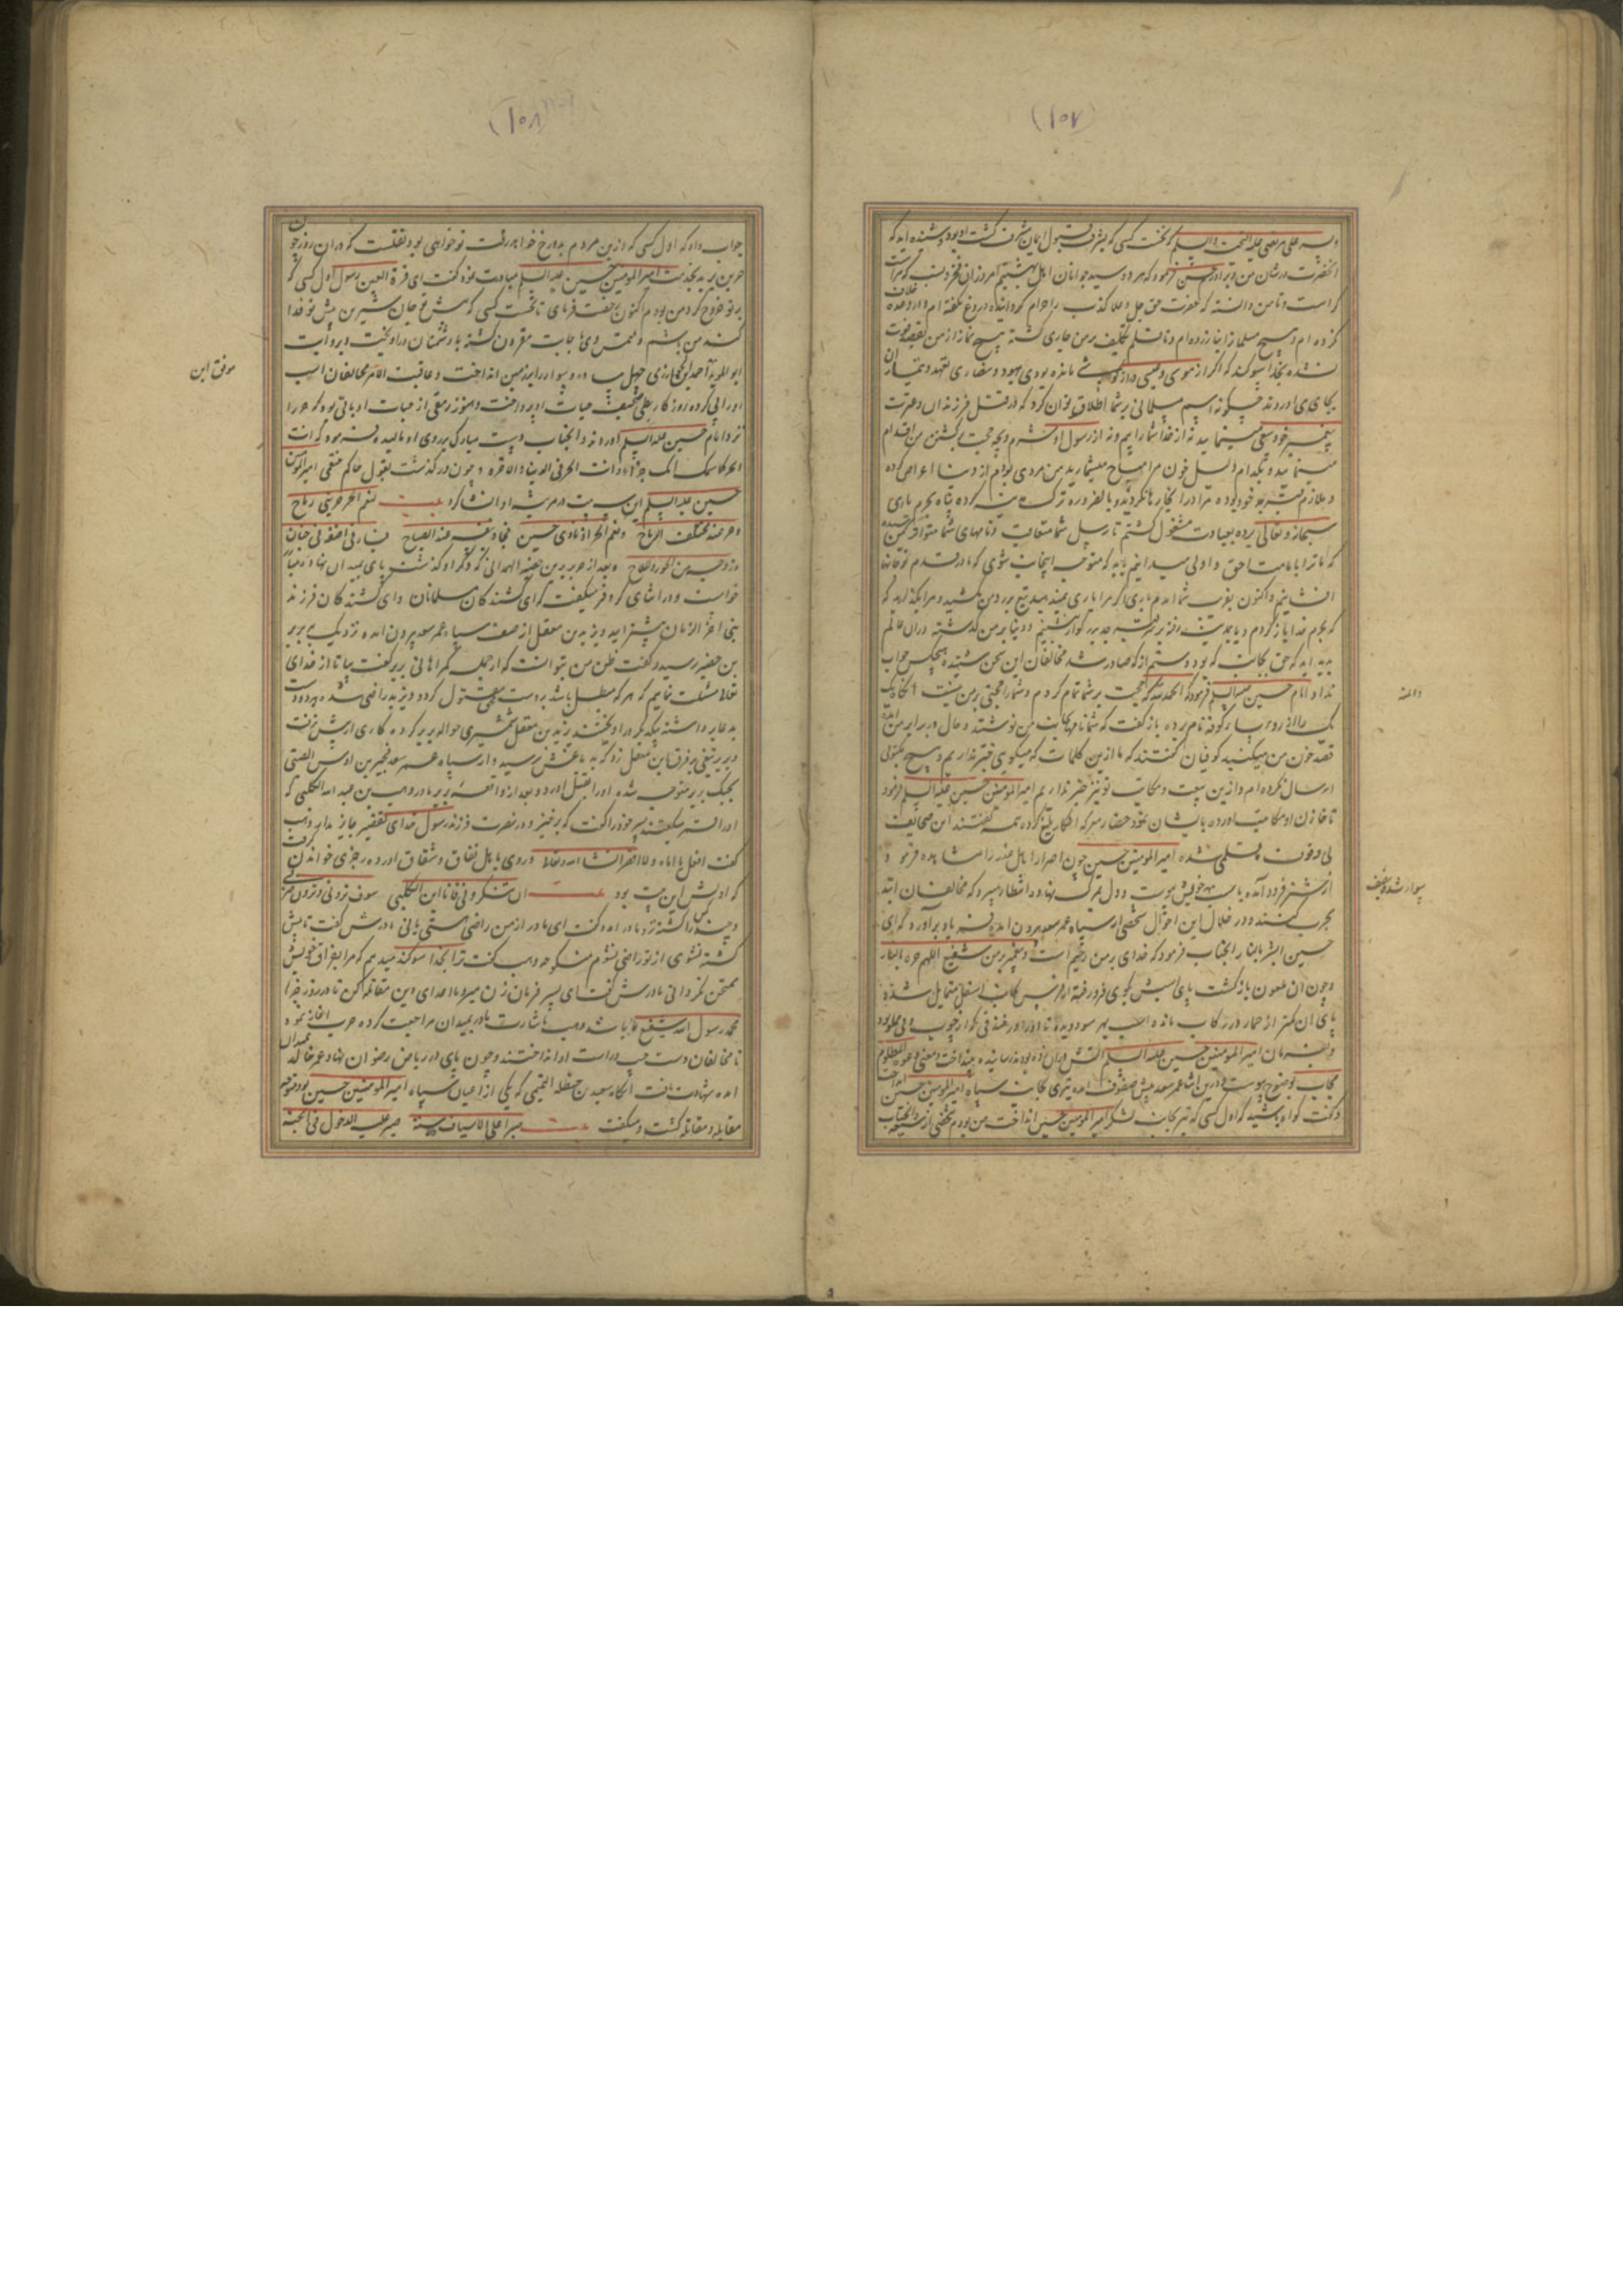 (١٠٧)
وسه علی مرتضی علیه التحیت والسلم که نخست کسی که بشرف قبول ایمان مشرف گشت او بود و شنیده اید که
انحضرت در شان من و برادرم حسن فرمود که هر دو سید جوانان اهل بهشتیم امروز این فخر و نسب که مراست
کراست و تا من دانسته که حضرت حق جل و علا کذب را حرام کردانیده دروغ نگفته ام و در وعده خلاف
نکرده ام و هیچ مسلمانرا نیازرده ام و تا قلم تکلیف بر من جاری گشته هیچ نماز از من فوت
نشده بخدا سوکند که اگر از موسی و عیسی مانده بودی یهود و نصاری
بجای اوردند چکونه اسم مسلمانی بر شما اطلاق توان کرد که در قتل فرزندان و عترت
پیغمبر خود سعی مینمایید نه از خدا شما را بیم و نه از رسول او شرم و بچه حجت بکشتن من اقدام
مینمایید و بکدام دلیل خون مرا مباح میشمارید من مردی بودم از دنیا اعراض کرده
و ملازم تربت جد خود بوده مرا در انجا رها نکردید و بالضروره ترک مدینه کرده پناه بحرم باری
سبحانه و تعالی برده بعبادت مشغول گشتم تا رسل شما متعاقب و نامهای شما متواتر بمن رسیده
که ما ترا بامامت احق و اولی میدانیم باید که متوجه اینجانب شوی که ما در قدم تو جانها
افشانیم و اکنون بقرب شما امدم باری اگر مرا یاری نمیدهید تیغ بر روی من مکشید و مرا بگذارید که
که بحرم خدا باز گردم و یا بمدینه رفته بر تربت جد بزرگوار نشینم و دنیا بر من گذشته در ان عالم
پدید اید که حق بجانب که بود و ستم از که صادر شد مخالفان این سخن شنیده هیچکس جواب
نداد امام حسین علیه السلم فرمود که الحمد لله که حجت بر شما تمام کردم و شما را حجتی بر من نیست انکاه یک
یک را از روسا کوفه نام برده باز گفت که شما نامها بجانب من نوشتند و حال در برابر من امده
قصد خون من میکنید کوفیان گفتند که ما ازین کلمات که میگویی خبر نداریم و هیچ مکتوبی
ارسال نکرده ام و ازین بیعت و مکاتیب تو نیز خبر نداریم امیر المومنین حسین علیه السلم فرمود
تا خازن او مکاتیب اورده بایشان نمود حضار معرکه انکار بلیغ کرده همه گفتند این صحایف
بی وقوف قلمی شده امیر المومنین حسین چون اصرار اهل غدر را مشاهده فرمود
از شتر فرود آمده باسپ خویش پیوست و دل بمرگ نهاده انتظار میبرد که مخالفان ابتدا
بحرب کنند و در خلال این احوال شخصی از سپاه عمر سعد بیرون امده فریاد برآورد که ای
حسین ابشر بالنار انجناب فرمود که خدای بر من رحیم است و پیغمبر من شفیع اللهم حره بالنار
و چون ان ملعون بازگشت پای اسپش بجوی فرو رفته از فرس بجانب اسفل متمایل شده
پای ان کمتر از حمار در رکاب مانده اسپ بهر سو دویده تا او را در خندقی که از چوب و نی مملو بود
و بفرمان امیر المومنین حسین علیه السلم اتش در ان زده بودند رسانیده بینداخت و معنی دعوة المظلوم
مجاب بوضوح پیوست و درین اثنا عمر سعد پیش صفوف امده تیری بجانب سپاه امیر المومنین حسین انداخت
و گفت کواه باشید که اول کسی که تیر بجانب لشکر امیر المومنین حسین انداخت من بودم شخصی از شیعه انجناب
والمنة
سوار شده
(١٠٨)
جواب داد که اول کسی که ازین مردم بدوزخ خواهد رفت تو خواهی بود نقلست که در ان روز چون
حر بن یزید بخدمت امیر المومنین حسین علیه السلم مبادرت نموده گفت ای قرة العین رسول اول کسی که
بر تو خروج کرد من بودم اکنون رخصت فرمای تا نخست کسی که پیش تو جان شیرین پیش تو فدا
کند من باشم و ملتمس وی باجابت مقرون گشته با دشمنان در اویخت و بروایت
ابو المؤید احمد الخوارزمی چهل سوار و پیاده را بر زمین انداخت و عاقبت الامر مخالفان اسپ
او را پی کرده روزگار حیات او پرداخت و هنوز رمقی از حیات او باقی بود که حر را
نزد امام حسین علیه السلم اوردند و انجناب دست مبارک بر روی او مالیده فرمود که انت
الحر کما سمتک امک حرا و انت الحر فی الدنیا و الاخرة و چون در گذشت بقول حاکم متقی امیر المومنین
حسین علیه السلم این بیت در مرثیه او انشا کرد بیت لنعم الحر حر بنی ریاح
و حر عند مختلف الرماح و نعم الحر اذ نادی حسین فجاد بنفسه عند الصباح فیا ربی اضفه فی جنان
و زوجه من الحور الملاح و بعد از حر بریر بن خضیر الهمدانی که ذکر او گذشت پای بمیدان نهاد و مبارز
خواست و در اثنای کر و فر میگفت که ای کشندکان مسلمانان و ای کشندکان فرزند
نبی اخر الزمان پیشتر ایید و یزید بن معقل از صف سپاه عمر سعد بیرون امده نزدیک بریر
بن خضیر رسید و گفت ظن من بتو انست که از جمله گمراهانی بریر گفت بیا تا از خدای
تعالی مسئلت نمایم که هر که مبطل باشد بر دست محق مقتول گردد و یزید راضی شده هر دو دست
بدعا برداشته بیکدیگر در اویختند یزید بن معقل شمشیری حواله بریر کرده کاری ازپیش نرفت
و بریر تیغی بر فرق ابن معقل زد که به دماغش رسید و از سپاه عمر سعد بحیر بن اوس الضبی
بجنگ بریر متوجه شده او را بقتل اورد و بعد از واقعه بریر مادر وهب بن عبد الله الکلبی که
او را میگفتند پسر خود را گفت که برخیز و در نصرت فرزند رسول خدای تقصیر جایز مدار وهب گفت
گفت افعل یا اماه و لا اقصر انشا الله تعالی و روی باهل نفاق و شقاق اورده رجزی خواندن گرفت
که اولش این بیت بود بیت ان تنکرونی فانا ابن الکلبی سوف ترونی و ترون ضربی
و چند کس را کشته نزد مادر امده گفت ای مادر از من راضی هستی یا نی مادرش گفت تا پیش
کشته نشوی از تو راضی نشوم منکوحه وهب گفت ترا بخدا سوگند میدهم که مرا بفراق خویش
ممتحن نگردانی مادرش گفت ای پسر فرمان زن مبر و با اعدای دین مقاتله کن تا در روز جزا
محمد رسول الله شفیع تو باشد وهب باشارت مادر بمیدان مراجعت کرده حرب اغاز نمود
تا مخالفان دست چپ و راست او انداختند و چون پای در ریاض رضوان نهاد عمر خالد بمیدان
امده شهادت یافت انکاه سعد بن حنظله التمیمی که یکی از اعیان سپاه امیر المومنین حسین بود متوجه
مقابله و مقاتله گشت و میگفت بیت صبرا علی الاسیاف و الاسنة صبرا علیها لدخول فی الجنة
موفق ابن